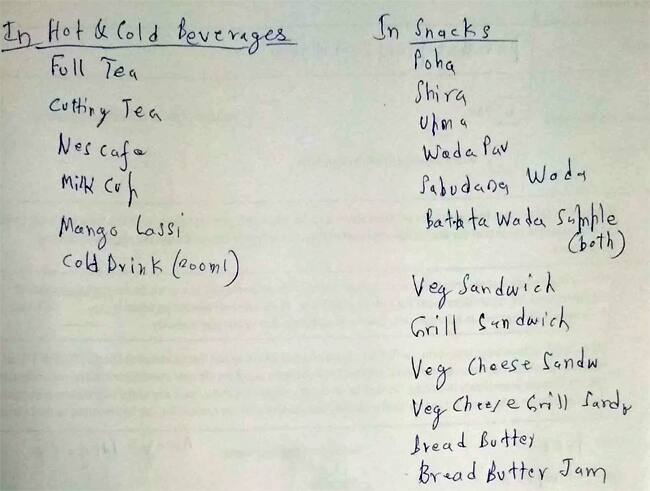 In Hot & Cold Beverages
Full Tea
Cutting Tea
Nescafe
Milk Cup
Mango Lassi
Cold Drink (200ml)
In Snacks
Poha
Shira
Upma
Wada Pav
Sabudana Wada
Batata Wada Sample
(both)
Veg Sandwich
Grill Sandwich
Veg Cheese Sandw
Veg Cheese Grill Sandw
Bread Butter
Bread Butter Jam